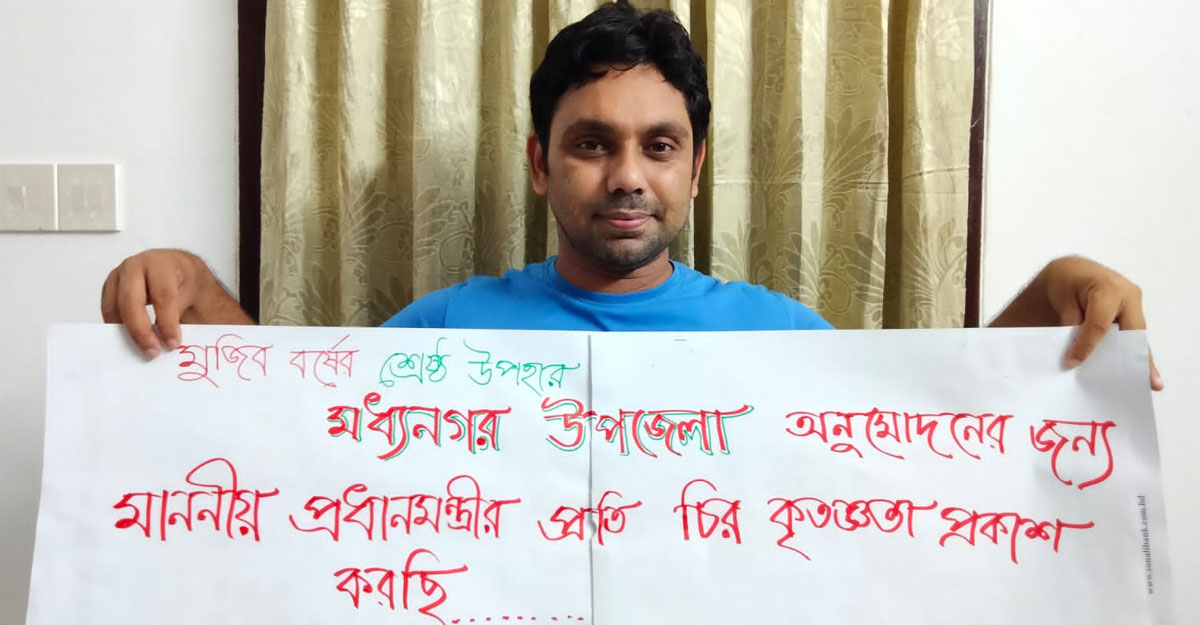 মুজিব বর্ষের শ্রেষ্ঠ উপহার
মধ্যনগর উপজেলা অনুমোদনের জন্য
মাননীয় প্রধানমন্ত্রীর প্রতি চির কৃতজ্ঞতা প্রকাশ
করছি........
www.sonalibank.com.bd